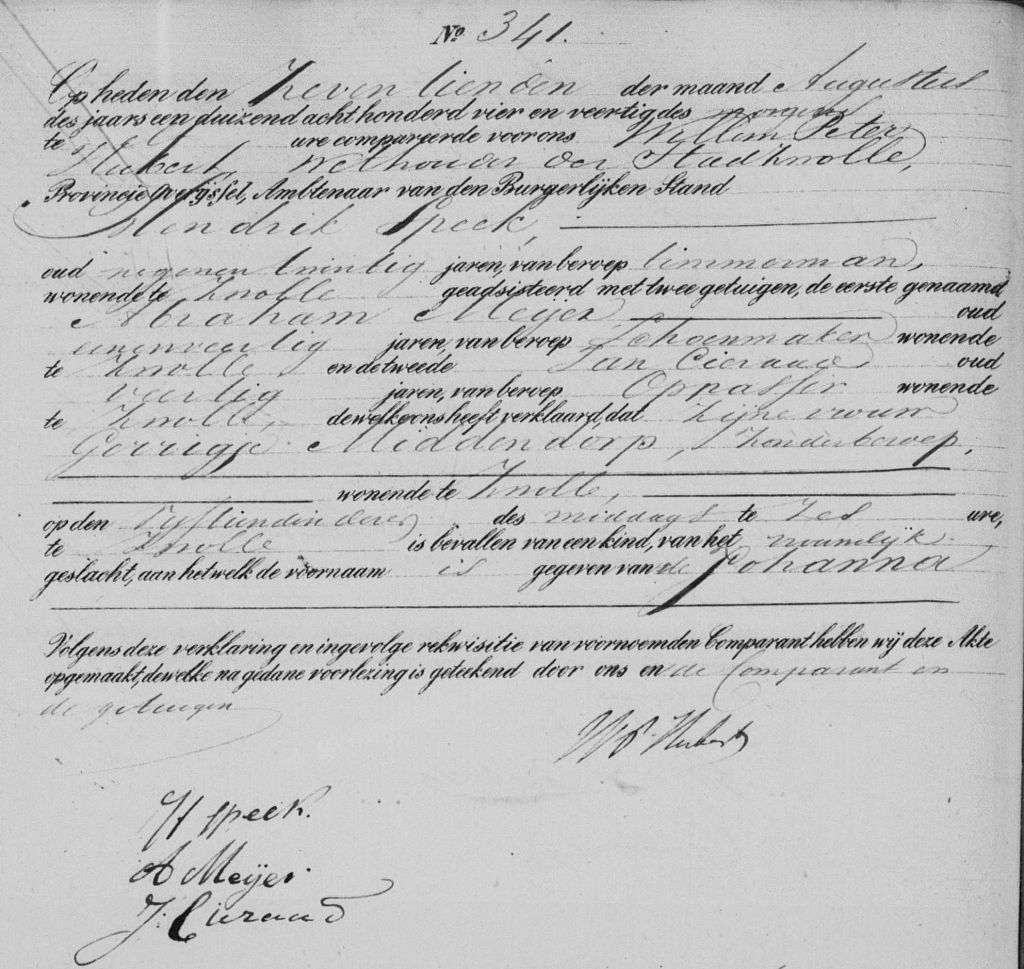 No. 341.
Op heden den Zeventienden der maand Augustus
des jaars een duizend acht honderd vier en veertig des morgens
te ure compareerde voor ons Willem Peter
Hubert, Wethouder der Stad Zwolle,
Provincie Overijssel, Ambtenaar van den Burgerlijken Stand
Hendrik Speek,
oud negenentwintig jaren, van beroep timmerman,
wonende te Zwolle geadsisteerd met twee getuigen, de eerste genaamd
Abraham Meijer, oud
eenenveertig jaren, van beroep Schoenmaker wonende
te Zwolle en de tweede Jan Cieraad oud
veertig jaren, van beroep Oppasser wonende
te Zwolle, dewelke ons heeft verklaard, dat zijne vrouw
Gerrigje Middendorp, zonder beroep,
wonende te Zwolle,
op den Vijftienden dezer des middags te Zes ure,
te Zwolle is bevallen van een kind, van het vrouwelijk
geslacht, aan hetwelk de voornaam is gegeven van de Johanna
Volgens deze verklaring en ingevolge rekwisitie van voornoemden Comparant hebben wij deze Akte
opgemaakt, dewelke na gedane voorlezing is geteekend door ons en de Comparant en
de getuigen
W P Hubert
H Speek.
A Meijer
J: Cieraad